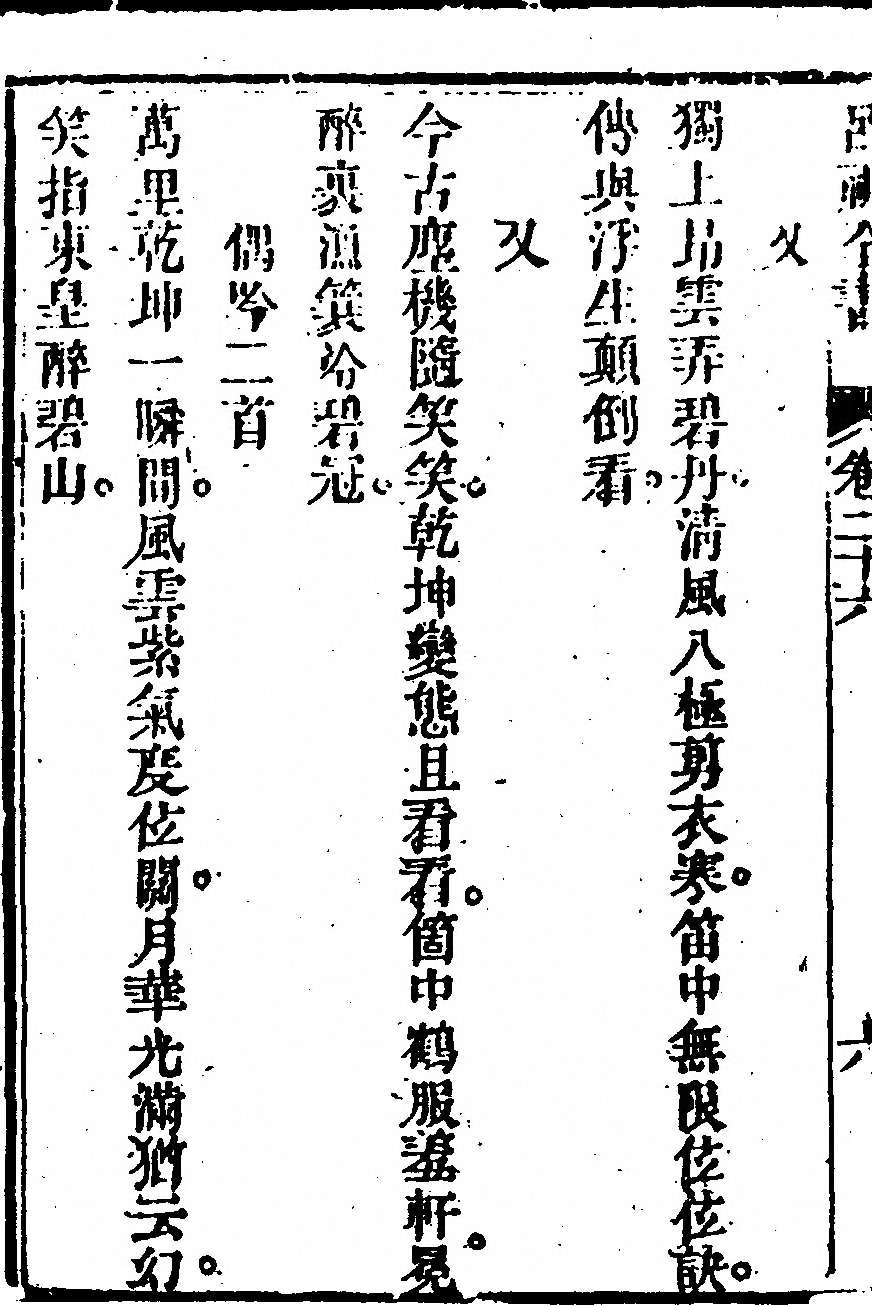 呂祖全書 卷二十六 六
又
獨上昂雲弄碧丹。清風八極剪衣寒。笛中無限伭伭訣。
傳與浮生顛倒看。
又
今古塵機隨笑笑。乾坤變態且看看。箇中鶴服羞軒冕。
醉裏漁簑冷碧冠。
偶吟二首
萬里乾坤一瞬間。風雲紫氣度伭關。月華光滿猶云幻。
笑指東皇醉碧山。